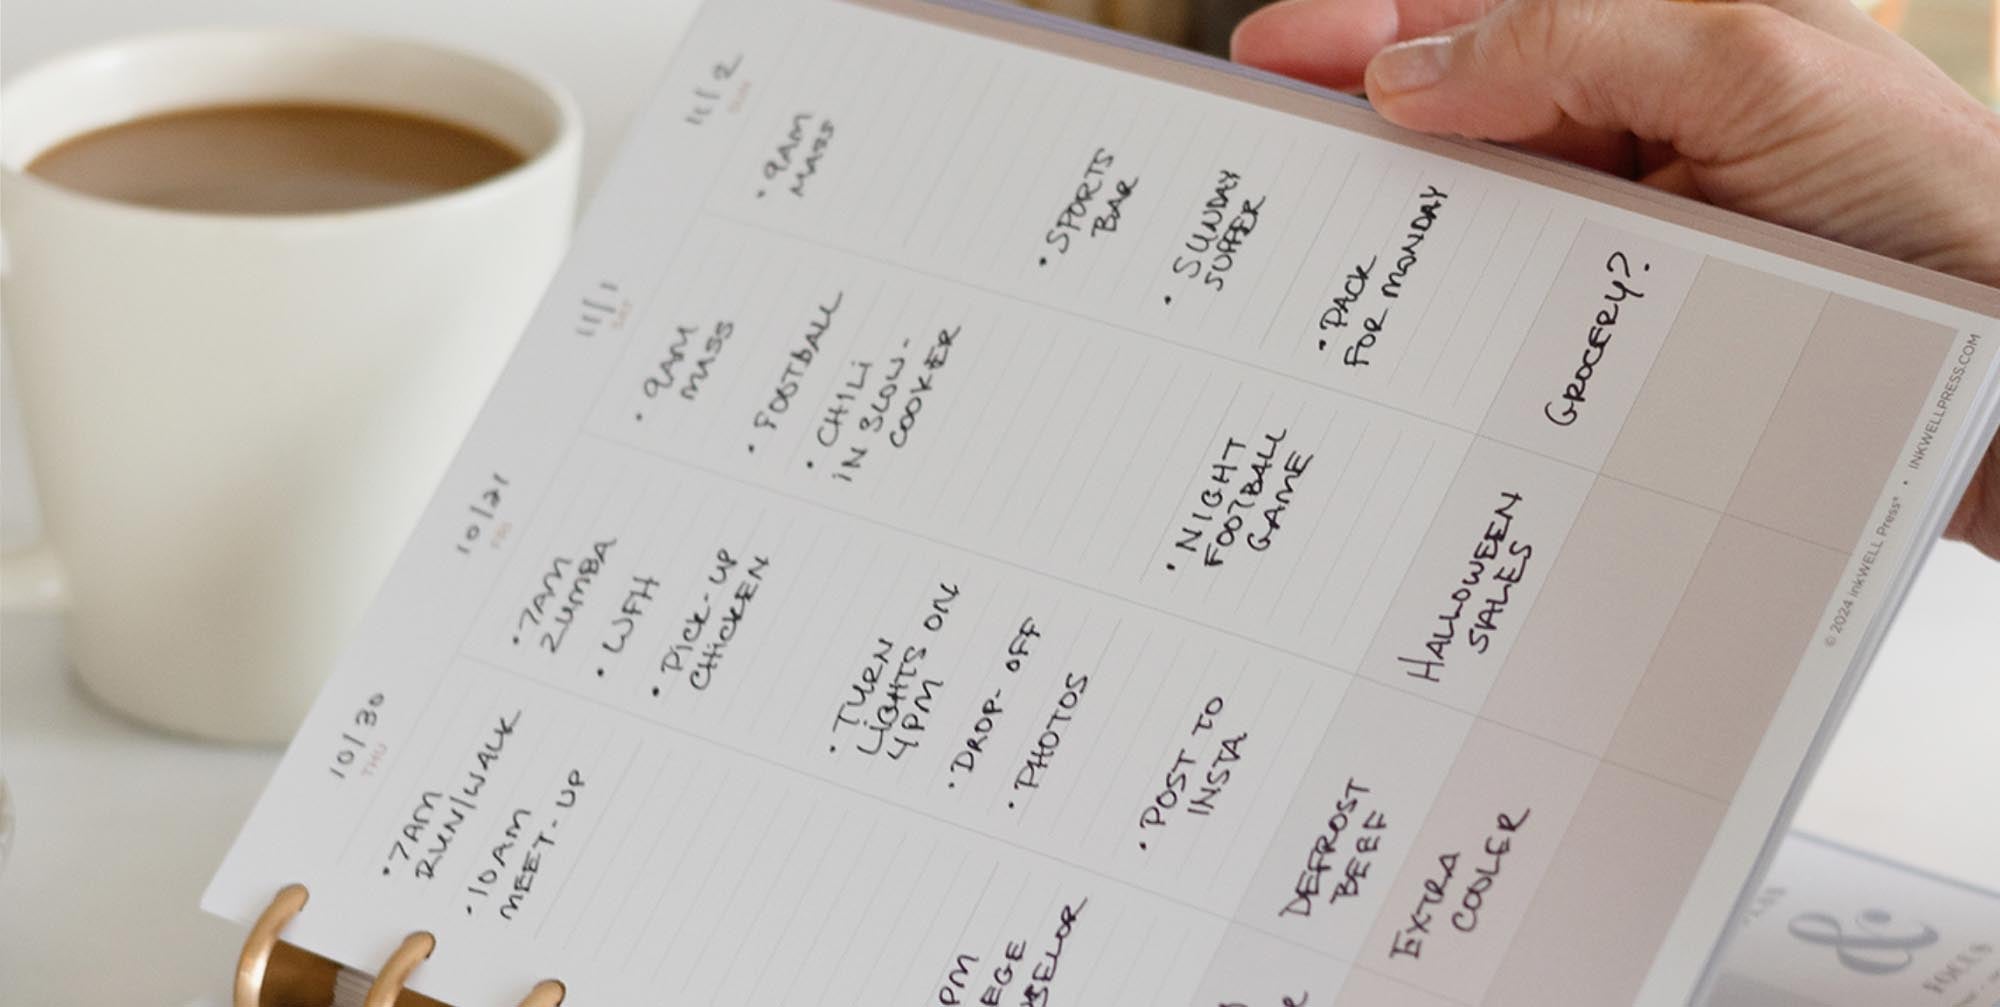 10/30
THU
• 7AM
RUN/WALK
• 10AM
MEET-UP
PM
EGE
SELOR
EXTRA
COOLER
10/31
FRI
• 7AM
ZUMBA
• WFH
• PICK-UP
CHICKEN
• TURN
LIGHTS ON
4PM
• DROP-OFF
• PHOTOS
• POST TO
INSTA
DEFROST
BEEF
11/1
SAT
• 9AM
MASS
• FOOTBALL
• CHILI
IN SLOW-
COOKER
• NIGHT
FOOTBALL
GAME
HALLOWEEN
SALES
11/2
SUN
• 9AM
MASS
• SPORTS
BAR
• SUNDAY
SUPPER
• PACK
FOR MONDAY
GROCERY?
© 2024 inkWELL Press® • INKWELLPRESS.COM
&
FOCUS